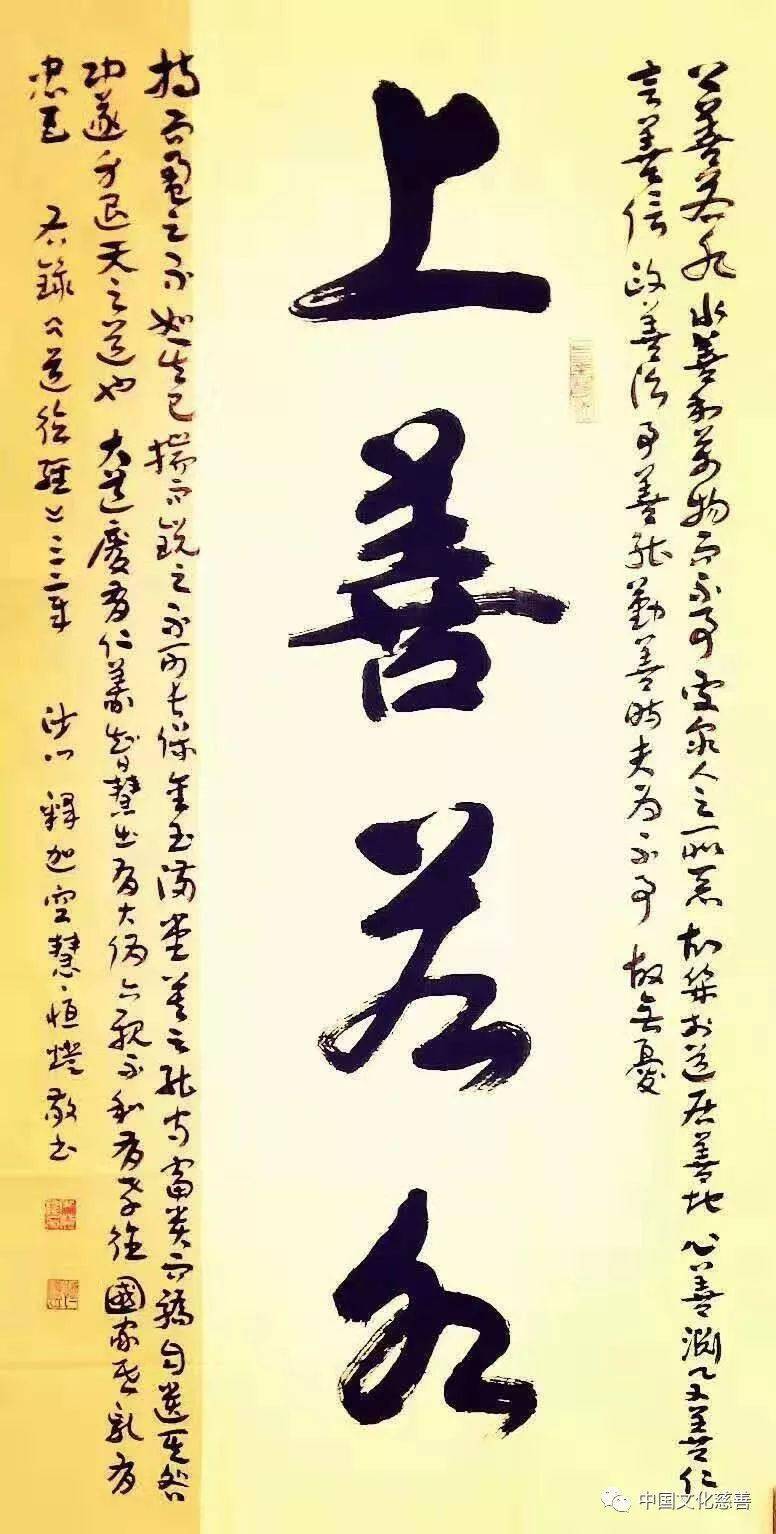 上善若水 水善利萬物而不爭 處眾人之所惡 故幾於道 居善地 心善淵 與善仁
言善信 政善治 事善能 動善時 夫為不爭 故無憂
上善若水
持而盈之不如其已 揣而銳之不可長保 金玉滿堂 莫之能守 富貴而驕 自遺其咎
功遂身退天之道也 大道廢有仁義 智慧出有大偽 六親不和有孝慈 國家昏亂有
忠臣 右錄 道德經 沙門 釋迦空慧 恒燈敬书
中国文化慈善